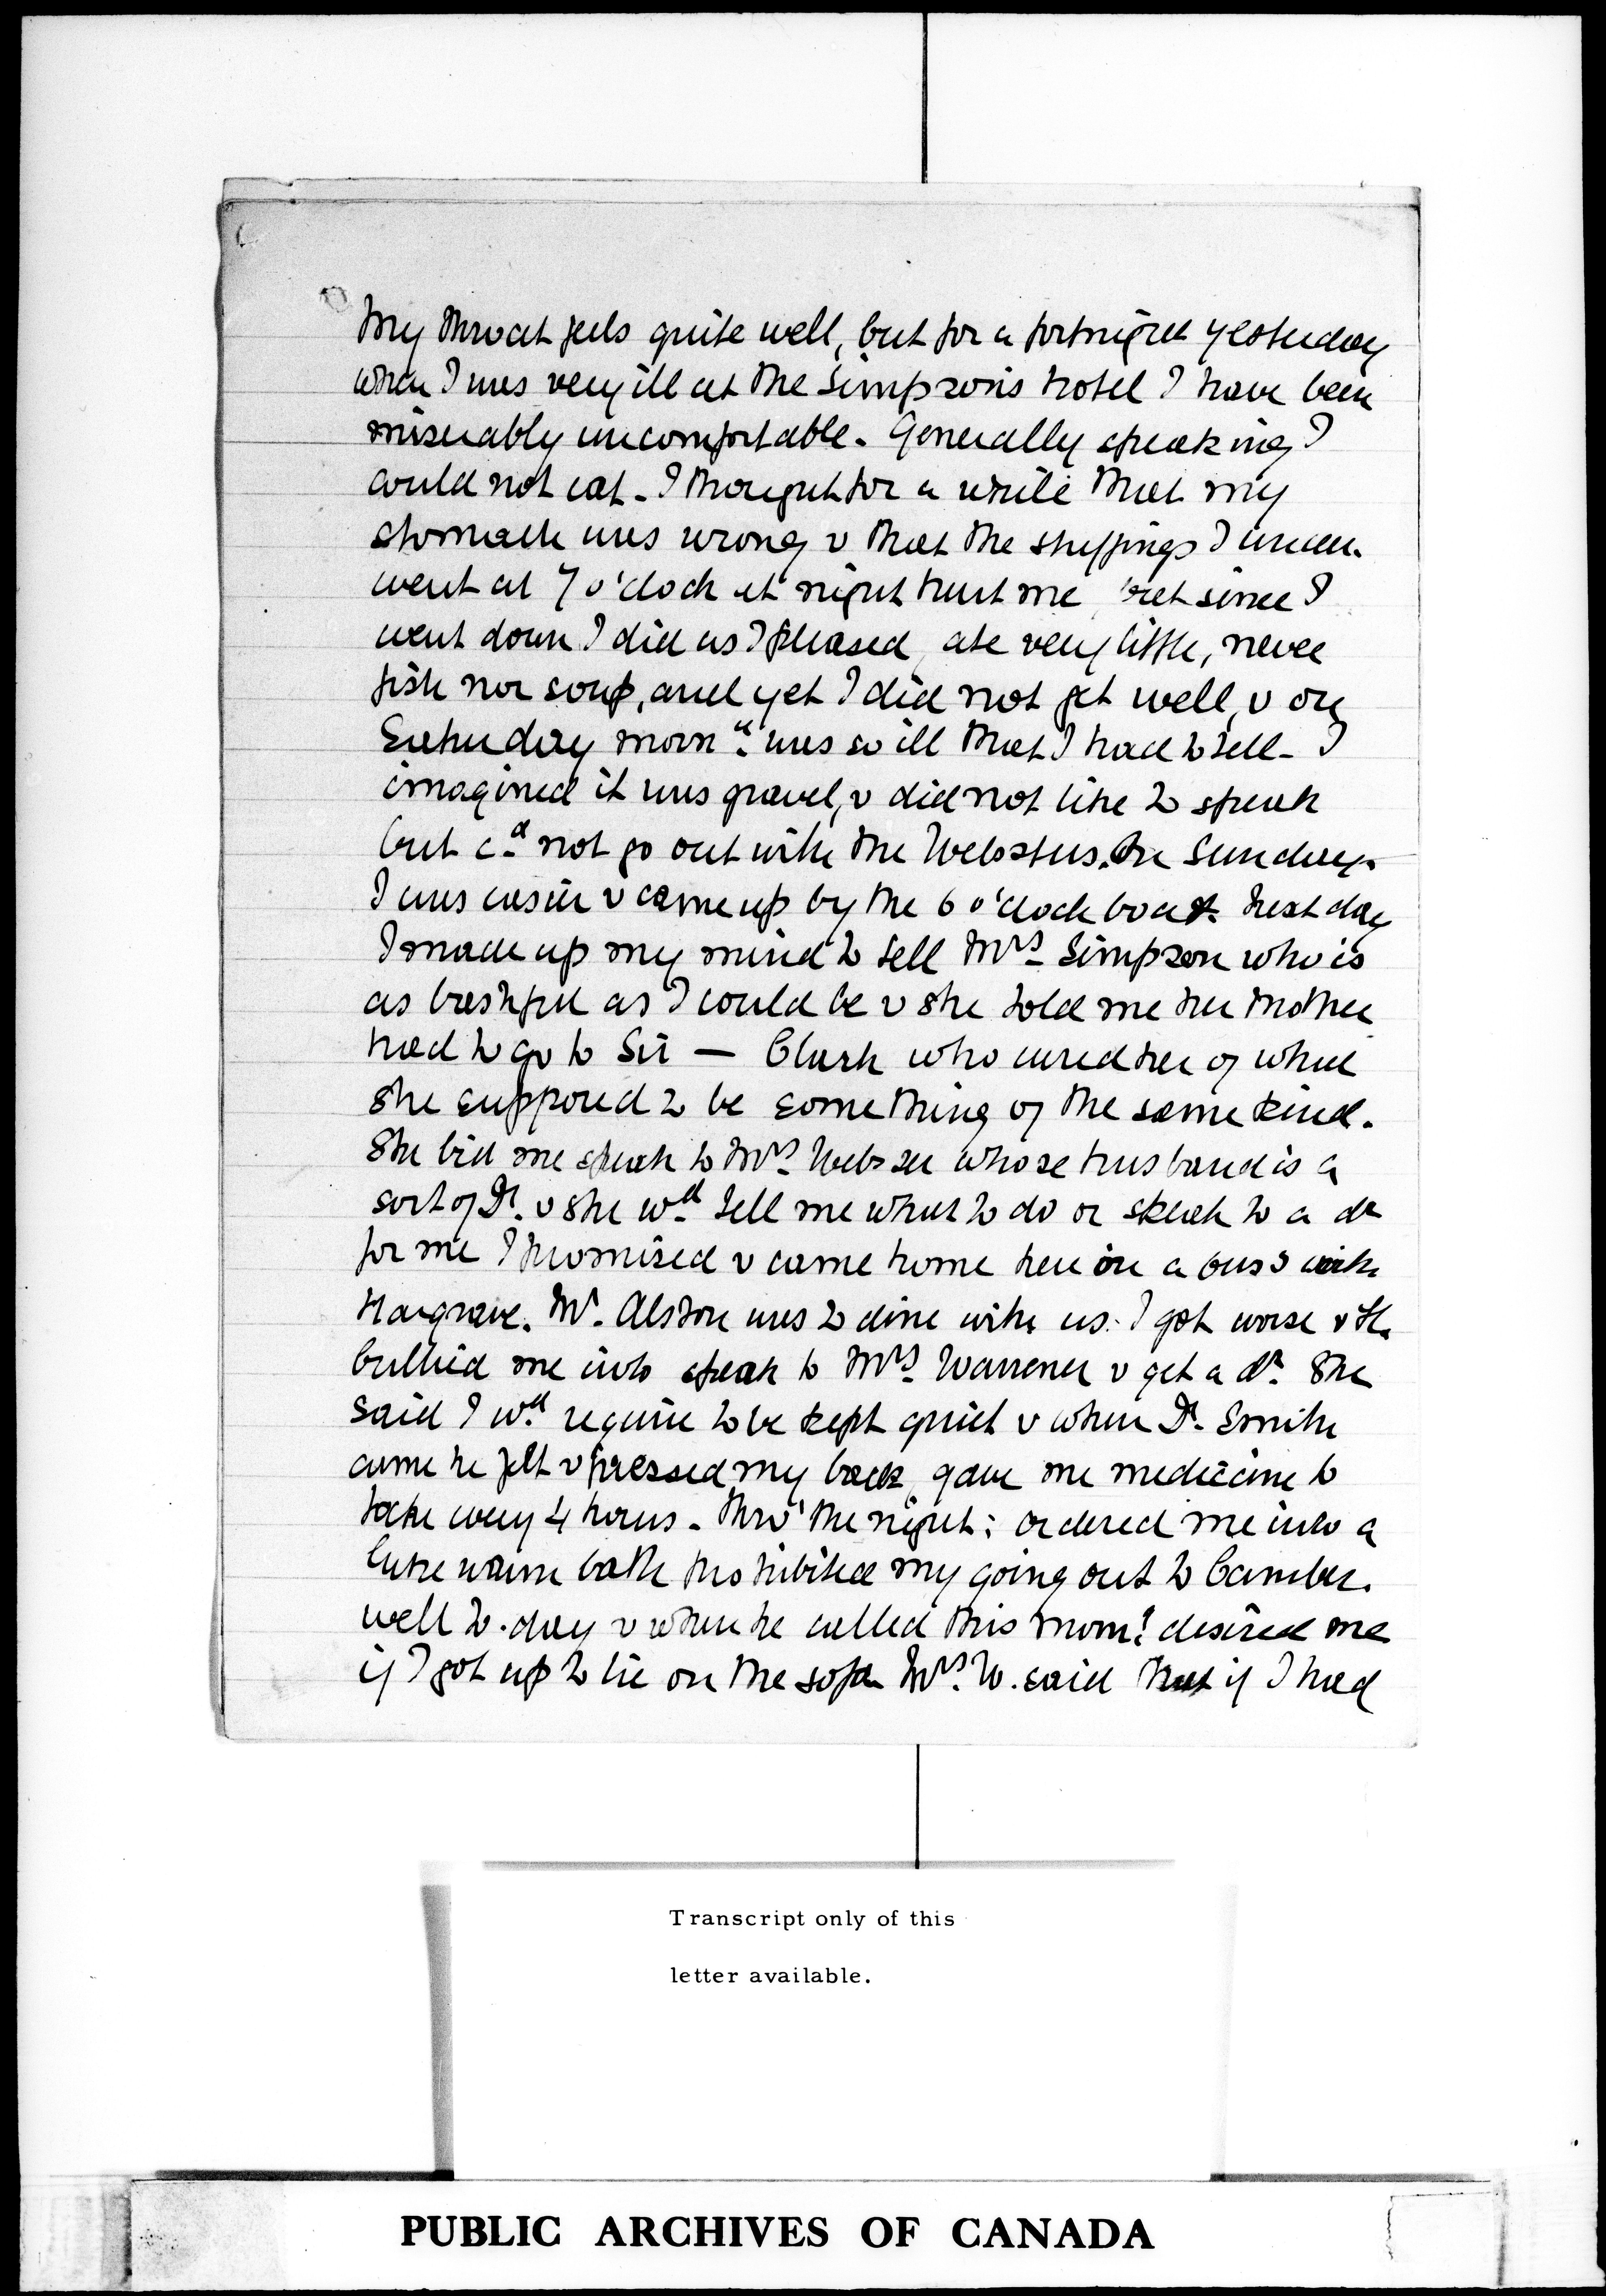 My throat feels quite well, but for a fortnight yesterday
when I was very ill at the Simpson's hotel I have been
miserably uncomfortable. Generally speaking I
could not eat - I thought for a while that my
stomach was wrong & that the stuffings I under-
went at 7 o'clock at night hurt me, but since I
went down I did as I pleased, ate very little, never
fish nor soup, and yet I did not get well, & on
Saturday morn.g was so ill that I had to tell - I
imagined it was gravel, & did not like to speak
but c.d not go out with the Websters. On Sunday.
I was easier & came up by the 6 o'clock boat. Next day
I made up my mind to tell Mrs Simpson who is
as bashful as I could be & she told me her mother
had to go to Sir — Clark who cured her of what
she supposed to be something of the same kind.
She bid me speak to Mrs Webster whose husband is a
sort of Dr. & she w.d tell me what to do or speak to a dr
for me I promised & came home here in a buss with
Hargrave. Mr. Alston was to dine with us. I got worse & H.
bullied me into speak to Mrs. Warrener & get a dr. She
said I w.d require to be kept quiet & when Dr. Smith
came he felt & pressed my back, gave me medicine to
take every 4 hours - thro' the night: ordered me into a
luke warm bath prohibited my going out to Camber-
well to-day & when he called this morn.g desired me
if I got up to lie on the sofa Mrs. W. said that if I had
Transcript only of this
letter available.
PUBLIC ARCHIVES OF CANADA